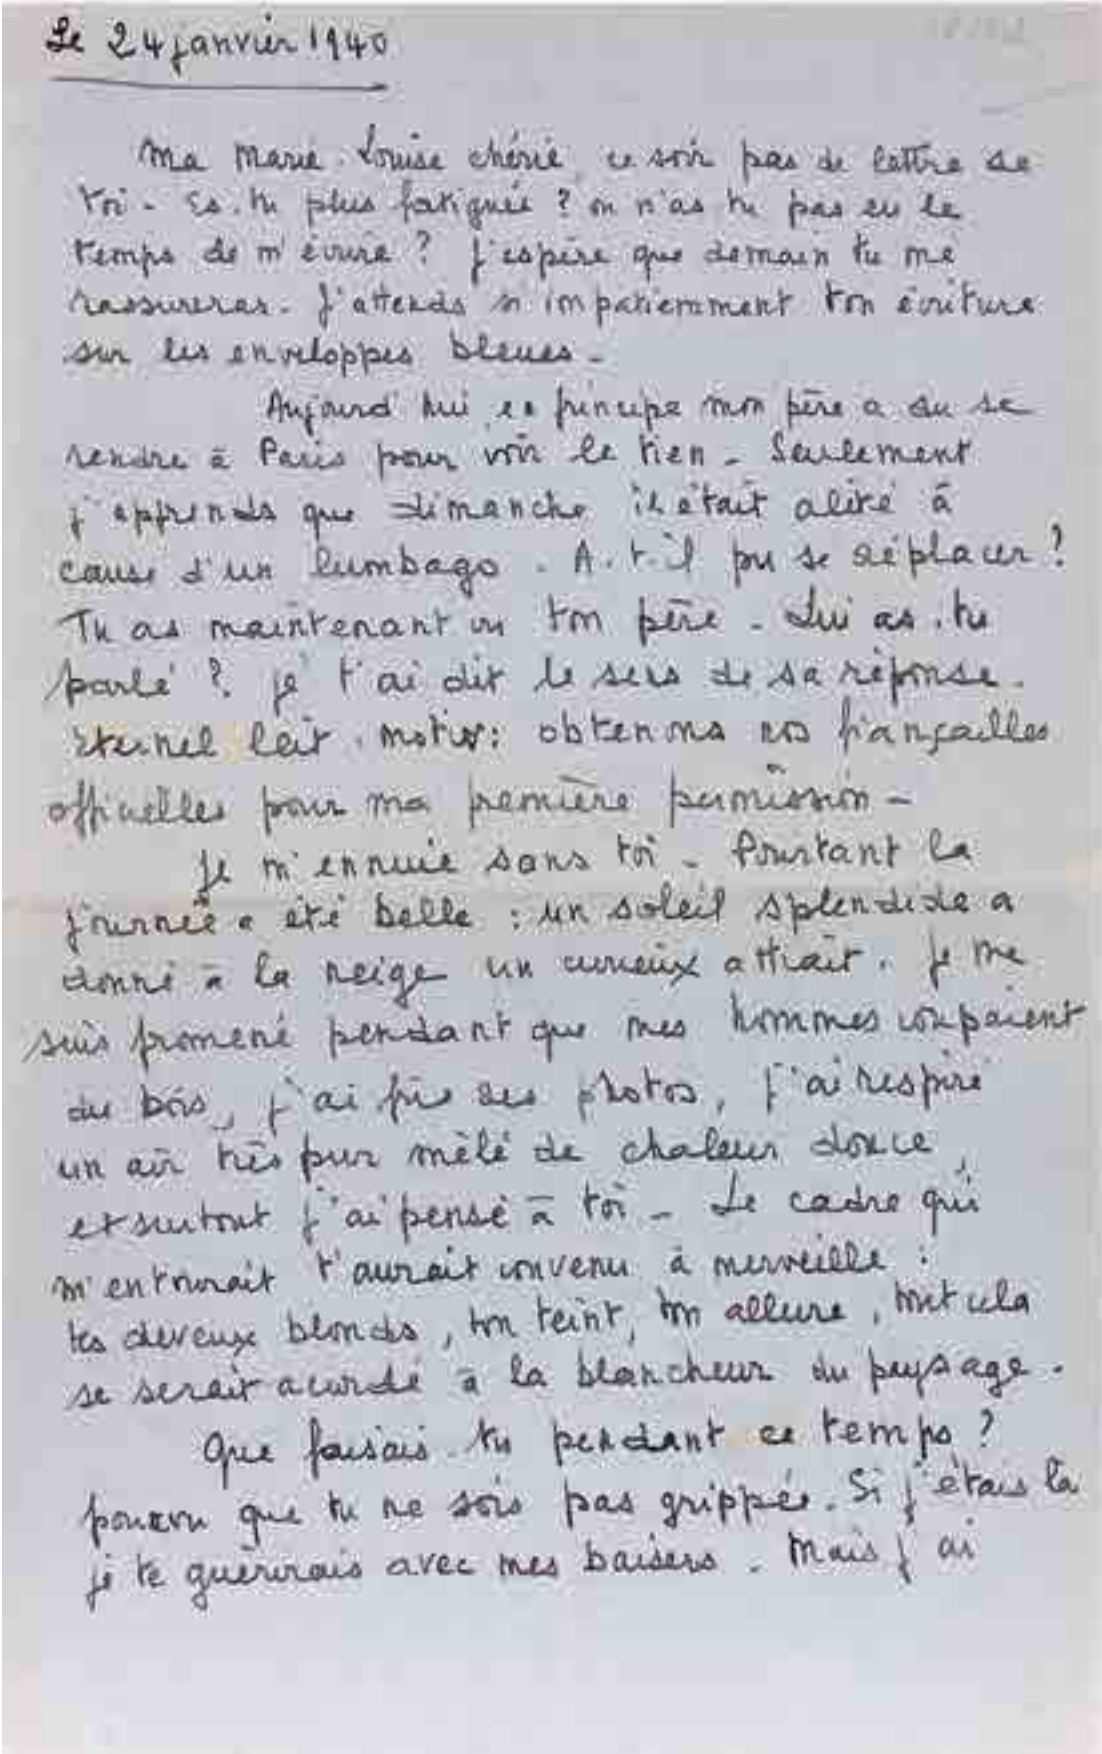 Le 24 janvier 1940
Ma Marie-Louise chérie, ce soir pas de lettre de
toi - Es-tu plus fatiguée ? ou n'as tu pas eu le
temps de m'écrire ? J'espère que demain tu me
rassureras - J'attends si impatiemment ton écriture
sur les enveloppes bleues -
Aujourd'hui en principe mon père a du se
rendre à Paris pour voir le tien - Seulement
j'apprends que dimanche il était alité à
cause d'un lumbago. A-t-il pu se déplacer ?
Tu as maintenant vu ton père - Lui as-tu
parlé ? je t'ai dit le sens de sa réponse.
Eternel leit-motiv : obtenons nos fiançailles
officielles pour ma première permission -
Je m'ennuie sans toi - Pourtant la
journée a été belle : un soleil splendide a
donné à la neige un curieux attrait. Je me
suis promené pendant que mes hommes coupaient
du bois, j'ai pris des photos, j'ai respiré
un air très pur mêlé de chaleur douce,
et surtout j'ai pensé à toi - Le cadre qui
m'entourait t'aurait convenu à merveille :
tes cheveux blonds, ton teint, ton allure, tout cela
se serait accordé à la blancheur du paysage.
Que faisais-tu pendant ce temps ?
pourvu que tu ne sois pas grippée. Si j'étais là
je te guérirais avec mes baisers. Mais j'ai